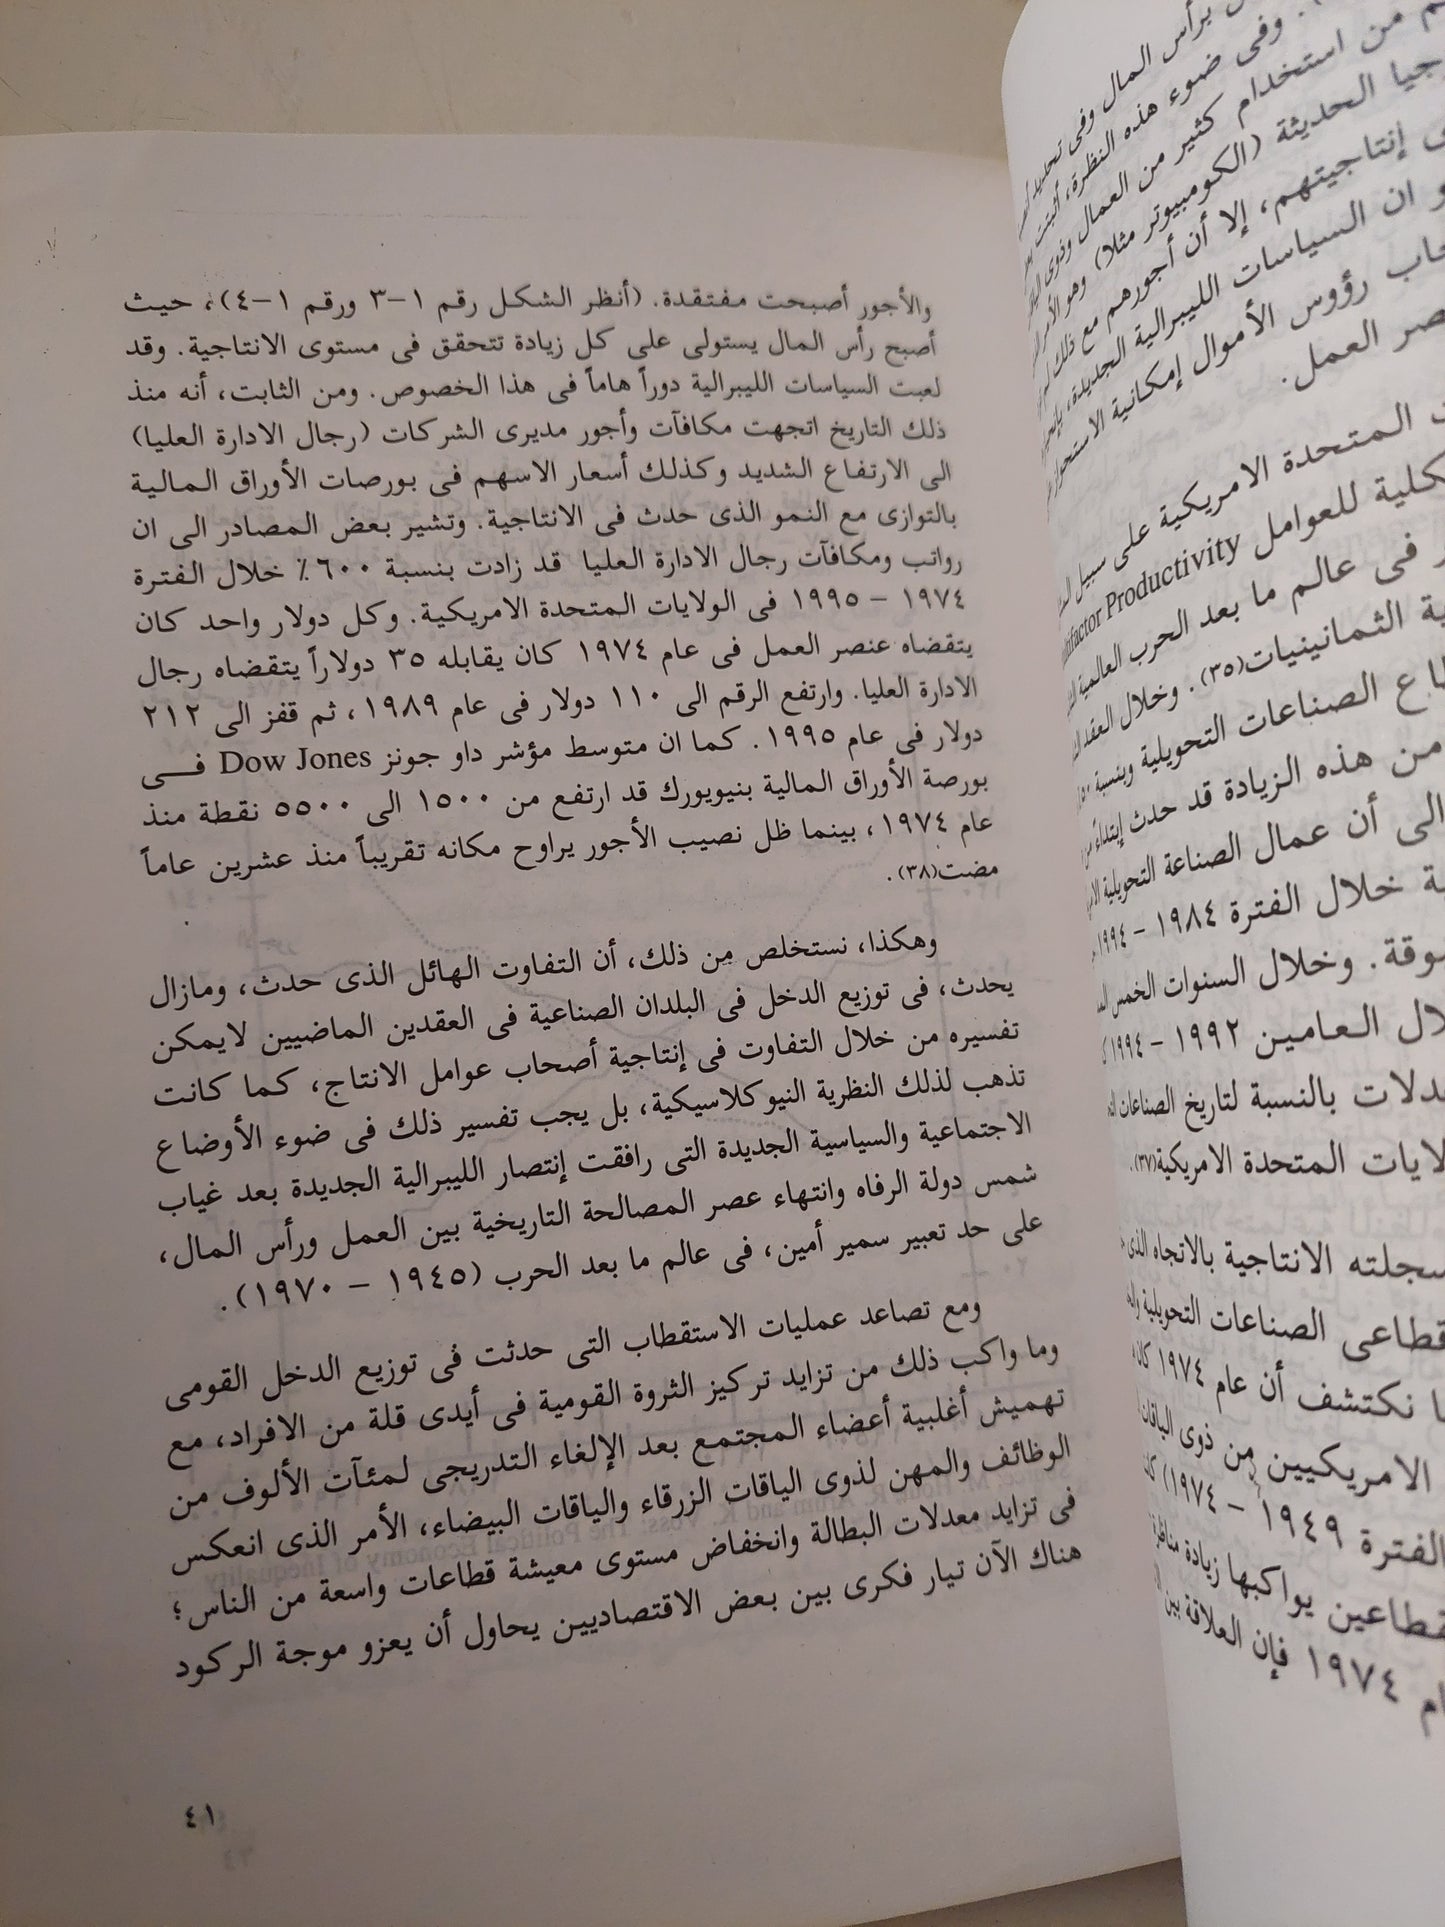 برأس المال وفى تحديد
وفى ضوء هذه النظرة، أثبتت
من استخدام كثير من العمال وذوى
جيا الحديثة (الكومبيوتر مثلا) وهو الأمر
إنتاجيتهم، إلا أن أجورهم مع ذلك لم
ان السياسات الليبرالية الجديدة،
رؤوس الأموال إمكانية الاستحواذ
العمل.
المتحدة الامريكية على سبيل
كلية للعوامل Productivity
فى عالم ما بعد الحرب العالمية
الثمانينيات(٣٥). وخلال العقد
الصناعات التحويلية وبنسبة
من هذه الزيادة قد حدث إبتداء من
الى أن عمال الصناعة التحويلية
خلال الفترة ١٩٨٤ - ١٩٩٤
وخلال السنوات الخمس
العامين ١٩٩٢ - ١٩٩٤
بالنسبة لتاريخ الصناعات
المتحدة الامريكية(٣٧).
سجلته الانتاجية بالاتجاه الذى
قطاعى الصناعات التحويلية
نكتشف أن عام ١٩٧٤ كان
الامريكيين من ذوى الياقات
الفترة ١٩٤٩ - ١٩٧٤)
يواكبها زيادة مناظرة
١٩٧٤ فإن العلاقة بين
والأجور أصبحت مفتقدة. (أنظر الشكل رقم ١-٣ ورقم ١-٤)، حيث
أصبح رأس المال يستولى على كل زيادة تتحقق فى مستوى الانتاجية. وقد
لعبت السياسات الليبرالية دوراً هاماً فى هذا الخصوص. ومن الثابت، أنه منذ
ذلك التاريخ اتجهت مكافآت وأجور مديرى الشركات (رجال الادارة العليا)
الى الارتفاع الشديد وكذلك أسعار الاسهم فى بورصات الأوراق المالية
بالتوازى مع النمو الذى حدث فى الانتاجية. وتشير بعض المصادر الى ان
رواتب ومكافآت رجال الادارة العليا قد زادت بنسبة ٦٠٠٪ خلال الفترة
١٩٧٤ - ١٩٩٥ فى الولايات المتحدة الامريكية. وكل دولار واحد كان
يتقضاه عنصر العمل فى عام ١٩٧٤ كان يقابله ٣٥ دولاراً يتقضاه رجال
الادارة العليا. وارتفع الرقم الى ١١٠ دولار فى عام ١٩٨٩، ثم قفز الى ٢١٢
دولار فى عام ١٩٩٥. كما ان متوسط مؤشر داو جونز Dow Jones فـــى
بورصة الأوراق المالية بنيويورك قد ارتفع من ١٥٠٠ الى ٥٥٠٠ نقطة منذ
عام ١٩٧٤، بينما ظل نصيب الأجور يراوح مكانه تقريباً منذ عشرين عاماً
مضت(٣٨).
وهكذا، نستخلص من ذلك، أن التفاوت الهائل الذى حدث، ومازال
يحدث، فى توزيع الدخل فى البلدان الصناعية فى العقدين الماضيين لايمكن
تفسيره من خلال التفاوت فى إنتاجية أصحاب عوامل الانتاج، كما كانت
تذهب لذلك النظرية النيوكلاسيكية، بل يجب تفسير ذلك فى ضوء الأوضاع
الاجتماعية والسياسية الجديدة التى رافقت إنتصار الليبرالية الجديدة بعد غياب
شمس دولة الرفاه وانتهاء عصر المصالحة التاريخية بين العمل ورأس المال،
على حد تعبير سمير أمين، فى عالم ما بعد الحرب (١٩٤٥ - ١٩٧٠).
ومع تصاعد عمليات الاستقطاب التى حدثت فى توزيع الدخل القومى
وما واكب ذلك من تزايد تركيز الثروة القومية فى أيدى قلة من الافراد، مع
تهميش أغلبية أعضاء المجتمع بعد الإلغاء التدريجى لمئآت الألوف من
الوظائف والمهن لذوى الياقات الزرقاء والياقات البيضاء، الأمر الذى انعكس
فى تزايد معدلات البطالة وانخفاض مستوى معيشة قطاعات واسعة من الناس؛
هناك الآن تيار فكرى بين بعض الاقتصاديين يحاول أن يعزو موجة الركود
٤١